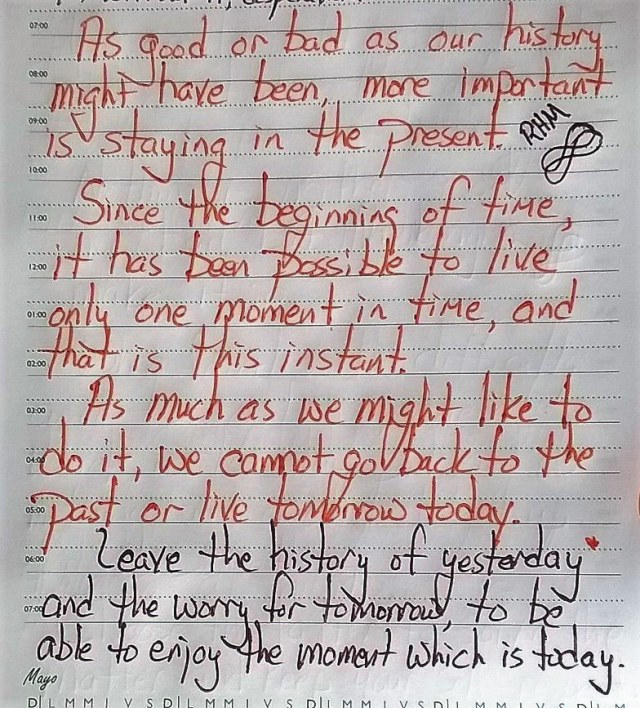 07:00 As good or bad as our history
08:00 might have been, more important
09:00 is staying in the present. RHM
10:00
11:00 Since the beginning of time,
12:00 it has been possible to live
01:00 only one moment in time, and
02:00 that is this instant.
03:00 As much as we might like to
04:00 do it, we cannot go back to the
05:00 past or live tomorrow today.
06:00 Leave the history of yesterday
07:00 and the worry for tomorrow, to be
able to enjoy the moment which is today.
Mayo
D L M M J V S D L M M J V S D L M M J V S D L M M J V S D L M